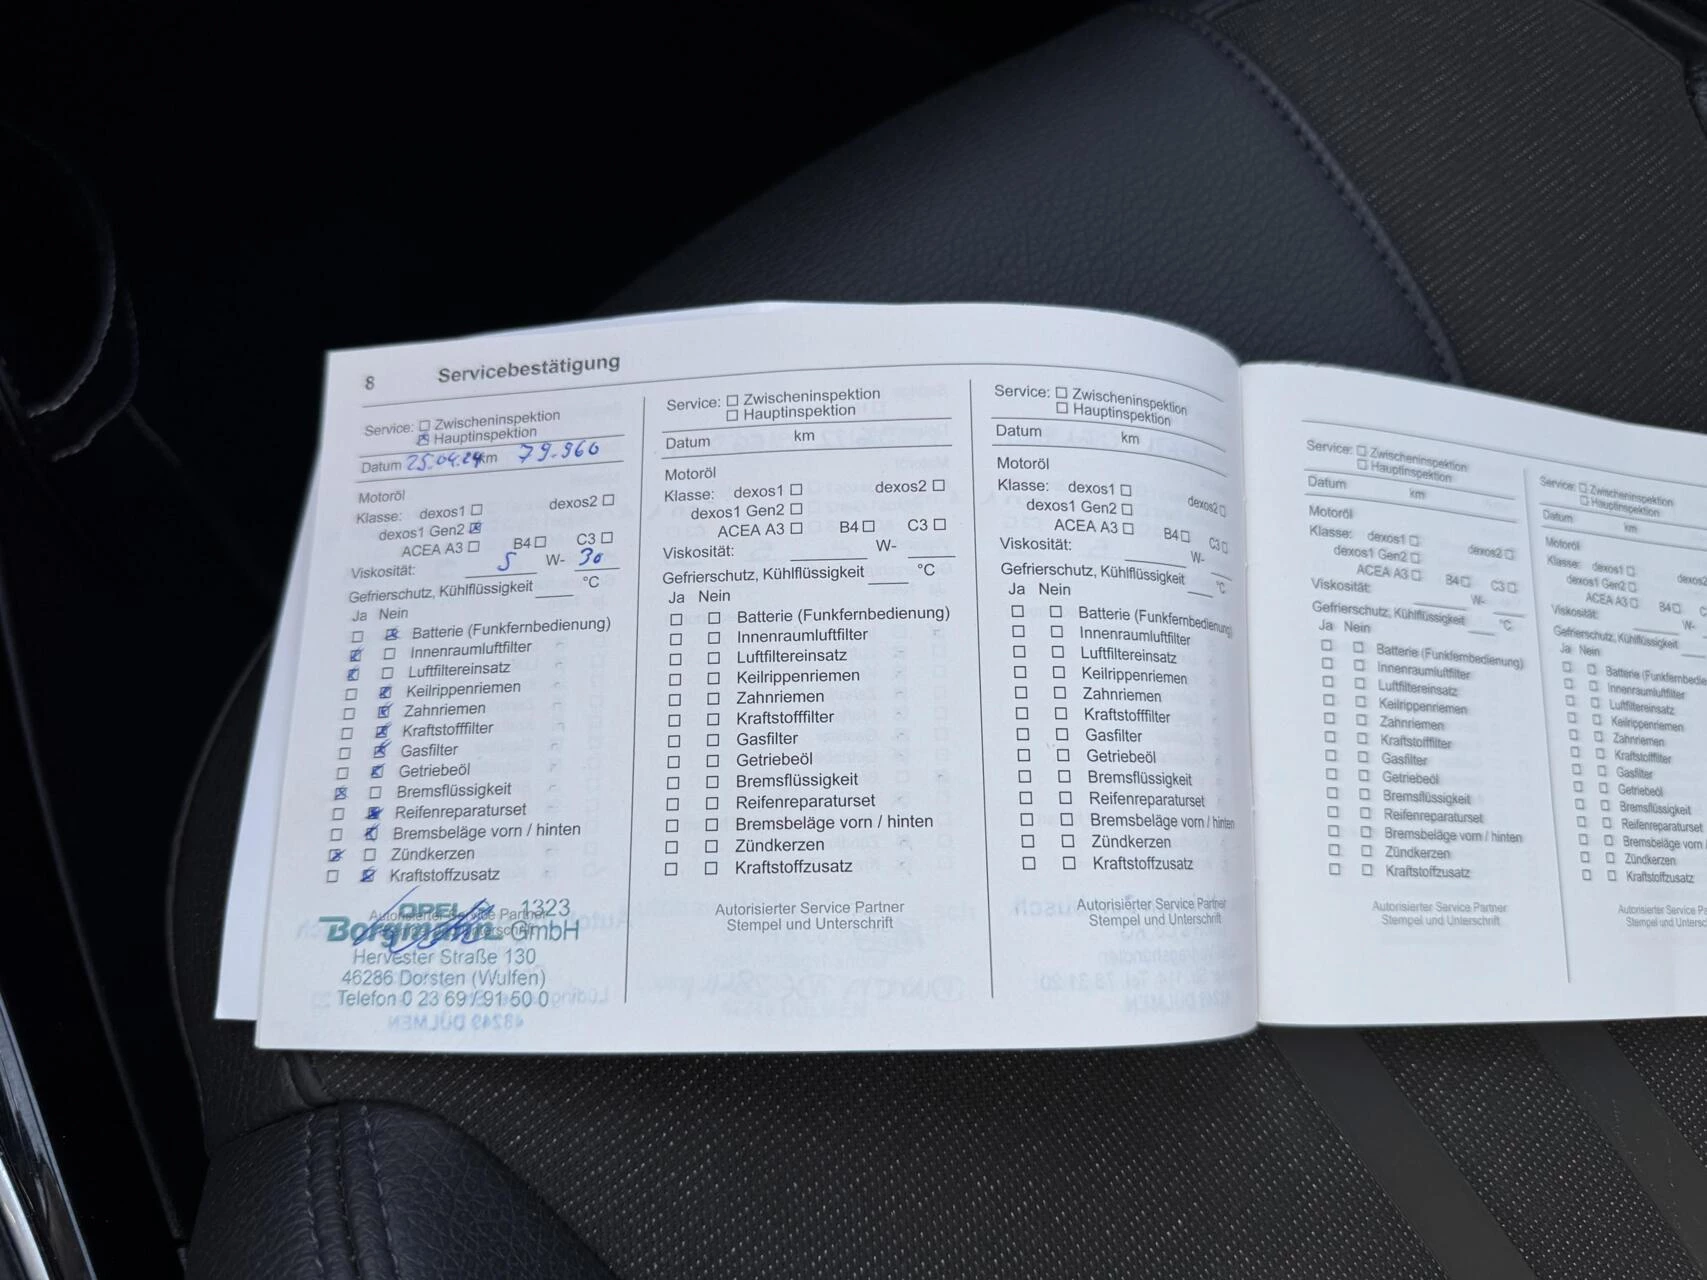 8 Servicebestätigung
Service: ☐ Zwischeninspektion
☒ Hauptinspektion
Datum 25.04.24 km 79.960
Motoröl
Klasse: dexos1 ☐ dexos2 ☐
dexos1 Gen2 ☒
ACEA A3 ☐ B4 ☐ C3 ☐
Viskosität: 5 W- 30
Gefrierschutz, Kühlflüssigkeit ____ °C
Ja Nein
☐ ☒ Batterie (Funkfernbedienung)
☒ ☐ Innenraumluftfilter
☒ ☐ Luftfiltereinsatz
☐ ☒ Keilrippenriemen
☐ ☒ Zahnriemen
☐ ☒ Kraftstofffilter
☐ ☒ Gasfilter
☐ ☒ Getriebeöl
☒ ☐ Bremsflüssigkeit
☐ ☒ Reifenreparaturset
☐ ☒ Bremsbeläge vorn / hinten
☒ ☐ Zündkerzen
☐ ☒ Kraftstoffzusatz
Autorisierter Service Partner
OPEL 1323
Borgmann GmbH
Hervester Straße 130
46286 Dorsten (Wulfen)
Telefon 0 23 69 / 91 50 0
Service: ☐ Zwischeninspektion
☐ Hauptinspektion
Datum km
Motoröl
Klasse: dexos1 ☐ dexos2 ☐
dexos1 Gen2 ☐
ACEA A3 ☐ B4 ☐ C3 ☐
Viskosität: ____ W- ____
Gefrierschutz, Kühlflüssigkeit ____ °C
Ja Nein
☐ ☐ Batterie (Funkfernbedienung)
☐ ☐ Innenraumluftfilter
☐ ☐ Luftfiltereinsatz
☐ ☐ Keilrippenriemen
☐ ☐ Zahnriemen
☐ ☐ Kraftstofffilter
☐ ☐ Gasfilter
☐ ☐ Getriebeöl
☐ ☐ Bremsflüssigkeit
☐ ☐ Reifenreparaturset
☐ ☐ Bremsbeläge vorn / hinten
☐ ☐ Zündkerzen
☐ ☐ Kraftstoffzusatz
Autorisierter Service Partner
Stempel und Unterschrift
Service: ☐ Zwischeninspektion
☐ Hauptinspektion
Datum km
Motoröl
Klasse: dexos1 ☐ dexos2 ☐
dexos1 Gen2 ☐
ACEA A3 ☐ B4 ☐ C3 ☐
Viskosität: ____ W- ____
Gefrierschutz, Kühlflüssigkeit ____ °C
Ja Nein
☐ ☐ Batterie (Funkfernbedienung)
☐ ☐ Innenraumluftfilter
☐ ☐ Luftfiltereinsatz
☐ ☐ Keilrippenriemen
☐ ☐ Zahnriemen
☐ ☐ Kraftstofffilter
☐ ☐ Gasfilter
☐ ☐ Getriebeöl
☐ ☐ Bremsflüssigkeit
☐ ☐ Reifenreparaturset
☐ ☐ Bremsbeläge vorn / hinten
☐ ☐ Zündkerzen
☐ ☐ Kraftstoffzusatz
Autorisierter Service Partner
Stempel und Unterschrift
Service: ☐ Zwischeninspektion
☐ Hauptinspektion
Datum km
Motoröl
Klasse: dexos1 ☐ dexos2 ☐
dexos1 Gen2 ☐
ACEA A3 ☐ B4 ☐ C3 ☐
Viskosität: ____ W- ____
Gefrierschutz, Kühlflüssigkeit ____ °C
Ja Nein
☐ ☐ Batterie (Funkfernbedienung)
☐ ☐ Innenraumluftfilter
☐ ☐ Luftfiltereinsatz
☐ ☐ Keilrippenriemen
☐ ☐ Zahnriemen
☐ ☐ Kraftstofffilter
☐ ☐ Gasfilter
☐ ☐ Getriebeöl
☐ ☐ Bremsflüssigkeit
☐ ☐ Reifenreparaturset
☐ ☐ Bremsbeläge vorn / hinten
☐ ☐ Zündkerzen
☐ ☐ Kraftstoffzusatz
Autorisierter Service Partner
Stempel und Unterschrift
Service: ☐ Zwischeninspektion
☐ Hauptinspektion
Datum km
Motoröl
Klasse: dexos1 ☐ dexos2
dexos1 Gen2 ☐
ACEA A3 ☐ B4 ☐ C
Viskosität: ____ W-
Gefrierschutz, Kühlflüssigkeit
Ja Nein
☐ ☐ Batterie (Funkfernbedie
☐ ☐ Innenraumluftfilter
☐ ☐ Luftfiltereinsatz
☐ ☐ Keilrippenriemen
☐ ☐ Zahnriemen
☐ ☐ Kraftstofffilter
☐ ☐ Gasfilter
☐ ☐ Getriebeöl
☐ ☐ Bremsflüssigkeit
☐ ☐ Reifenreparaturset
☐ ☐ Bremsbeläge vorn /
☐ ☐ Zündkerzen
☐ ☐ Kraftstoffzusatz
Autorisierter Service Pa
Stempel und Untersc